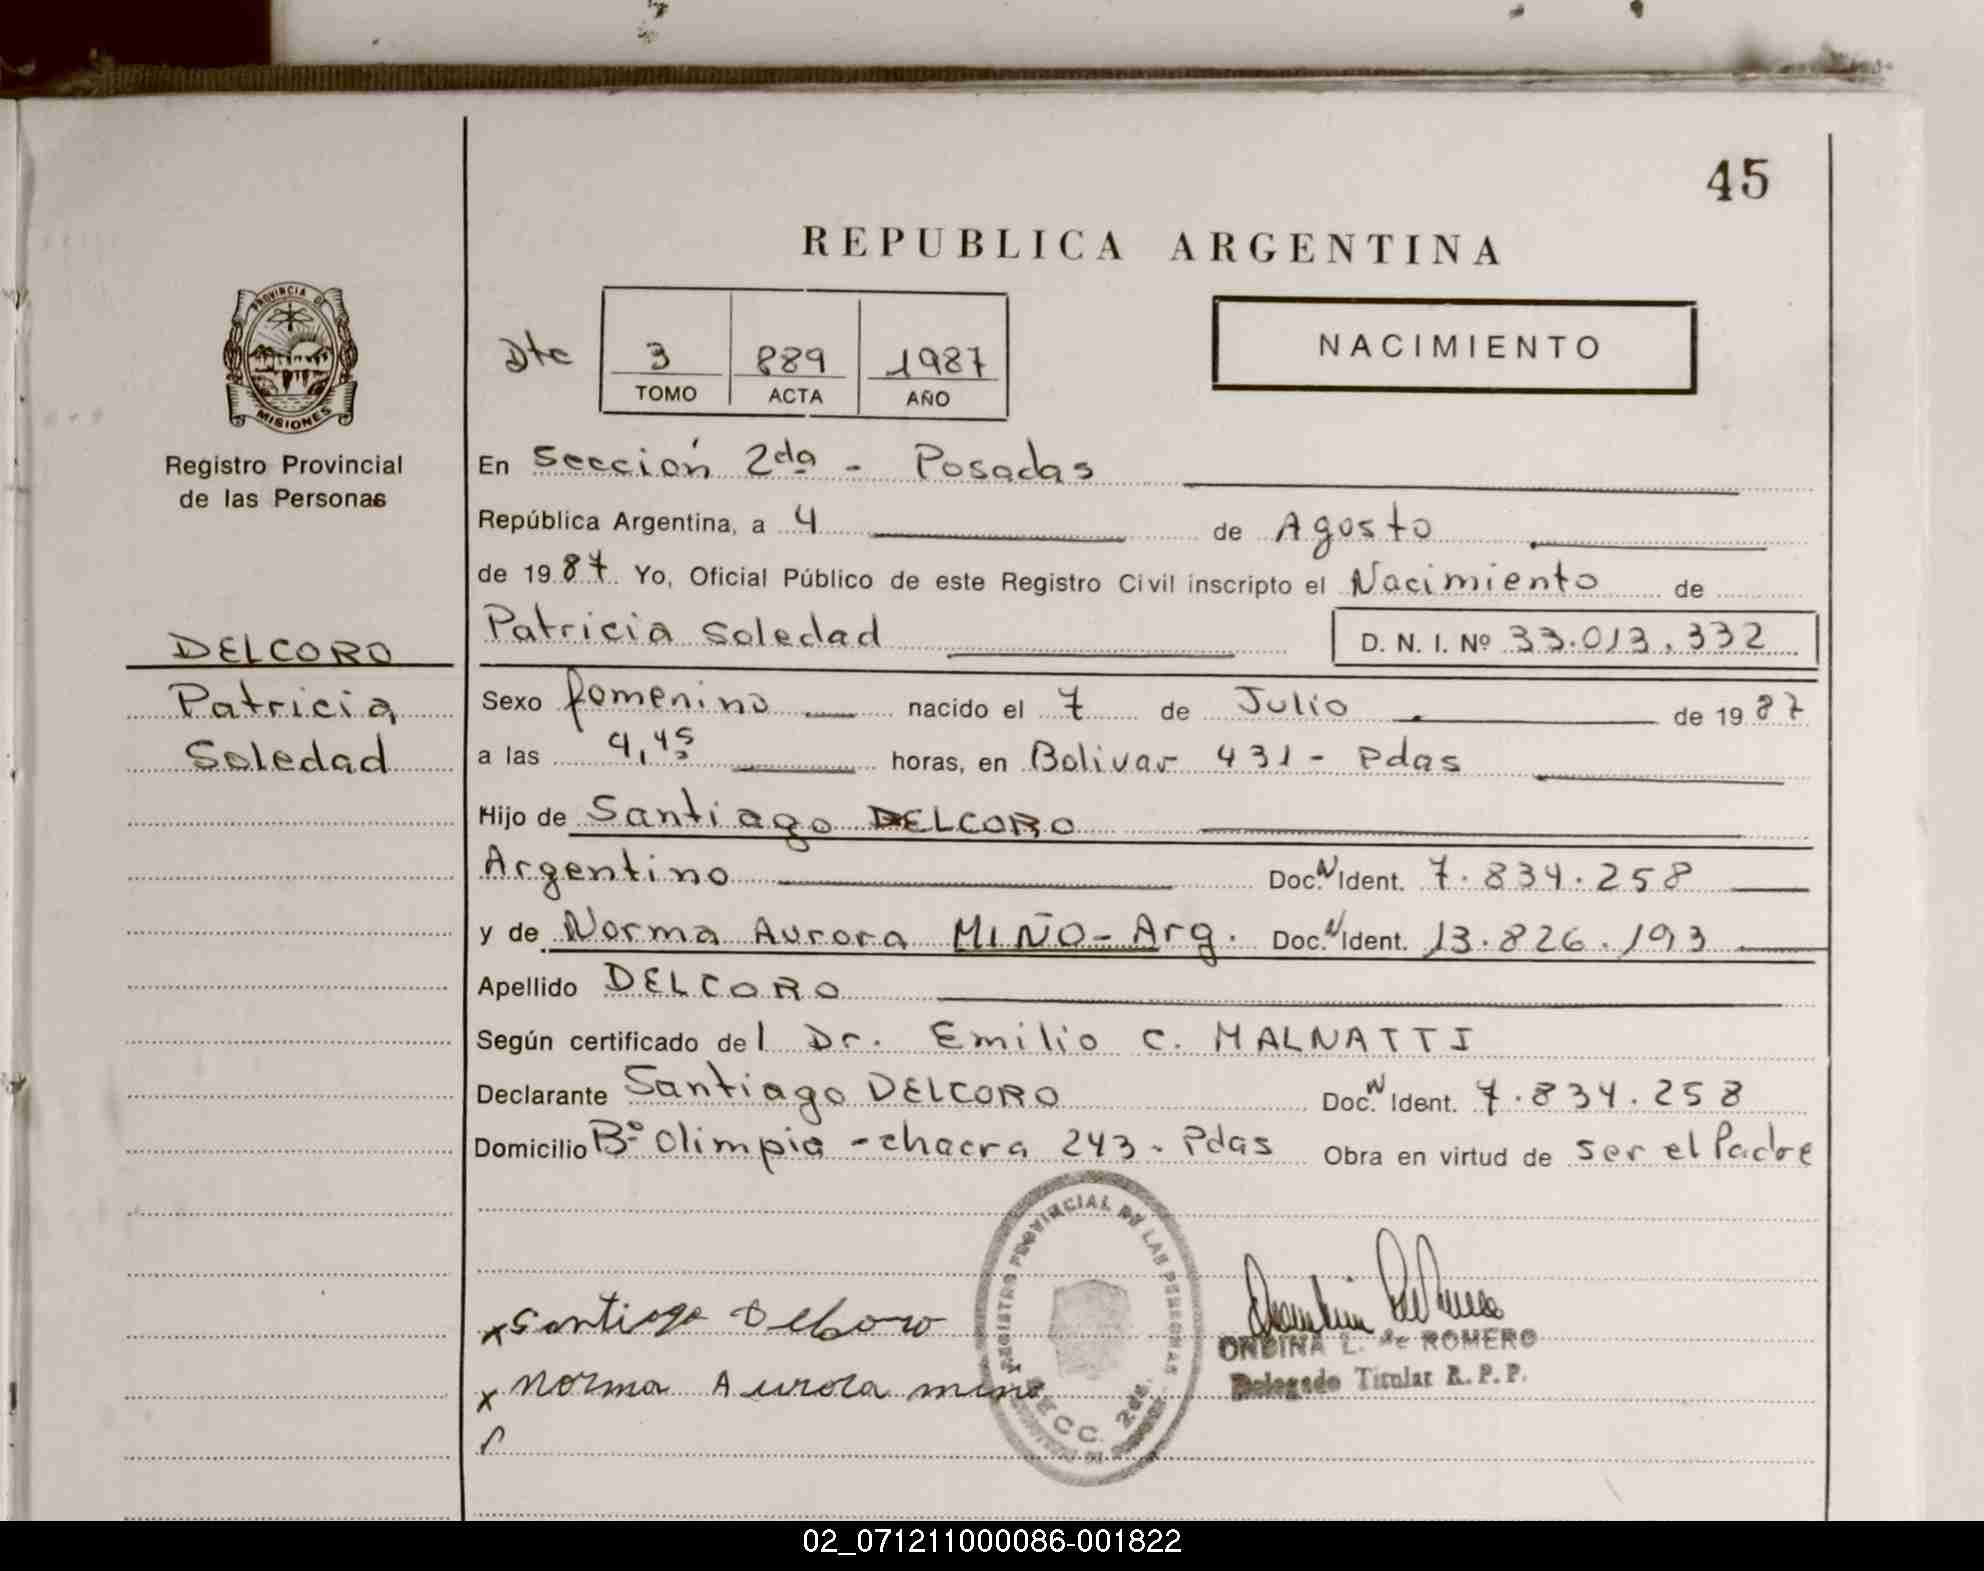 45
REPUBLICA ARGENTINA
PROVINCIA DE
MISIONES
Registro Provincial
de las Personas
Dtc 3 889 1987
TOMO ACTA AÑO
NACIMIENTO
En Sección 2da - Posadas
República Argentina, a 4 de Agosto
de 1987 Yo, Oficial Público de este Registro Civil inscripto el Nacimiento de
Patricia Soledad D. N. I. Nº 33.013.332
DELCORO
Patricia
Soledad
Sexo femenino nacido el 7 de Julio de 1987
a las 4,45 horas, en Bolivar 431 - Pdas
Hijo de Santiago DELCORO
Argentino Doc. N Ident. 7.834.258
y de Norma Aurora MIÑO - Arg. Doc. N Ident. 13.826.193
Apellido DELCORO
Según certificado del Dr. Emilio C. MALNATTI
Declarante Santiago DELCORO Doc. N Ident. 7.834.258
Domicilio Bº Olimpia - chacra 243 - Pdas Obra en virtud de ser el Padre
REGISTRO PROVINCIAL DE LAS PERSONAS
SECC. 2da.
x Santiago Delcoro
x Norma Aurora miño
ONDINA L. de ROMERO
Delegado Titular R. P. P.
02_071211000086-001822